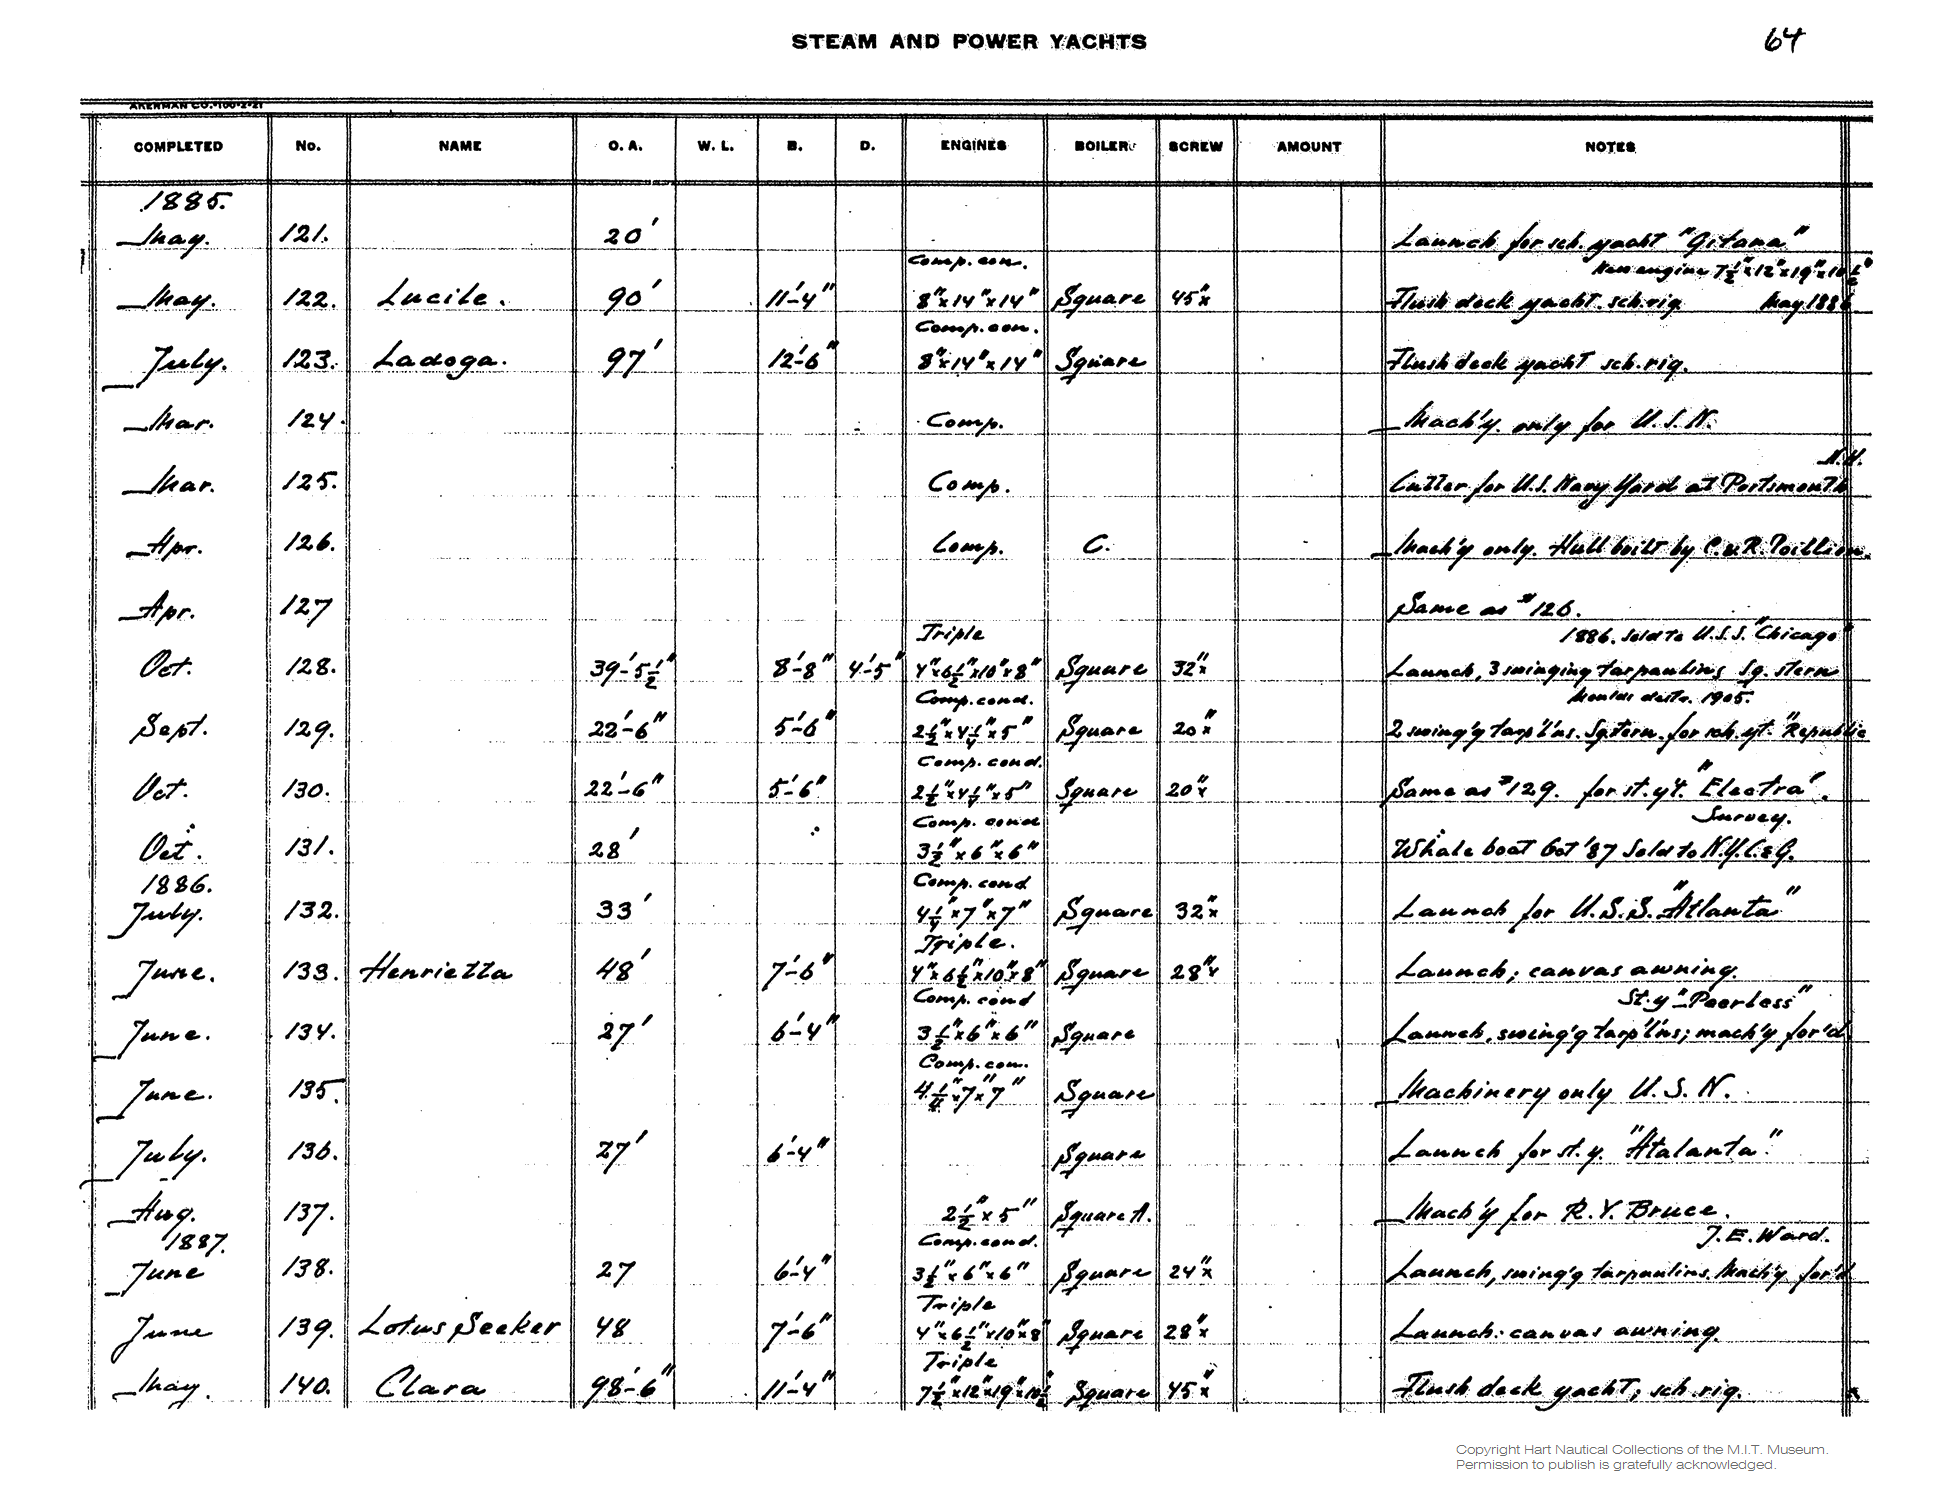 STEAM AND POWER YACHTS 64
AKERMAN CO.-100-2-21
COMPLETED No. NAME O. A. W. L. B. D. ENGINES BOILER SCREW AMOUNT NOTES
1885.
May. 121. 20' Launch for sch. yacht "Gitana"
Comp. con. New engine 7½"x12"x19"x10½"
May. 122. Lucile. 90' 11'-4" 8"x14"x14" Square 45"x Flush deck yacht. sch. rig. May 1886
Comp. con.
July. 123. Ladoga. 97' 12'-6" 8"x14"x14" Square Flush deck yacht sch. rig.
Mar. 124. Comp. Mach'y. only for U.S.N.
N.H.
Mar. 125. Comp. Cutter for U.S. Navy Yard at Portsmouth
Apr. 126. Comp. C. Mach'y only. Hull built by C. & R. Poillion.
Apr. 127 Same as #126.
Triple 1886. sold to U.S.S. "Chicago"
Oct. 128. 39'-5½" 8'-8" 4'-5" 4"x6½"x10"x8" Square 32"x Launch, 3 swinging tarpaulins Sq. stern
Comp. cond. Moulds destr. 1905.
Sept. 129. 22'-6" 5'-6" 2½"x4¼"x5" Square 20"x 2 swing'g tarp'l'ns. Sq. stern. for sch. yt. "Republic
Comp. cond.
Oct. 130. 22'-6" 5'-6" 2½"x4¼"x5" Square 20"x Same as #129. for st. yt. "Electra".
Comp. cond Survey.
Oct. 131. 28' 3½"x6"x6" Whale boat Oct '87 Sold to N.Y.C.&G.
1886. Comp. cond
July. 132. 33' 4¼"x7"x7" Square 32"x Launch for U.S.S. "Atlanta"
Triple.
June. 133. Henrietta 48' 7'-6" 4"x6½"x10"x8" Square 28"x Launch; canvas awning.
Comp. cond St. y "Peerless"
June. 134. 27' 6'-4" 3½"x6"x6" Square Launch, swing'g tarp'l'ns; mach'y for'd.
Comp. con.
June. 135. 4¼"x7"x7" Square Machinery only U.S.N.
July. 136. 27' 6'-4" Square Launch for st. y. "Atalanta"
Aug. 137. 2½"x5" Square A. Mach'y for R.Y. Bruce.
1887. Comp. cond. J.E. Ward.
June 138. 27 6'-4" 3½"x6"x6" Square 24"x Launch, swing'g tarpaulins. Mach'y for'd
Triple
June 139. Lotus Seeker 48 7'-6" 4"x6½"x10"x8" Square 28"x Launch: canvas awning.
Triple
May. 140. Clara 98'-6" 11'-4" 7½"x12"x19"x10½" Square 45"x Flush deck yacht; sch. rig.
Copyright Hart Nautical Collections of the M.I.T. Museum.
Permission to publish is gratefully acknowledged.